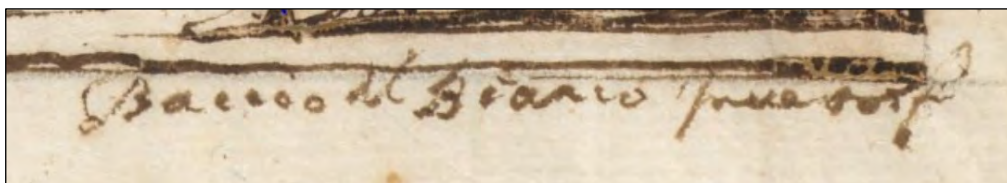 Baccio del Bianco Inventor f